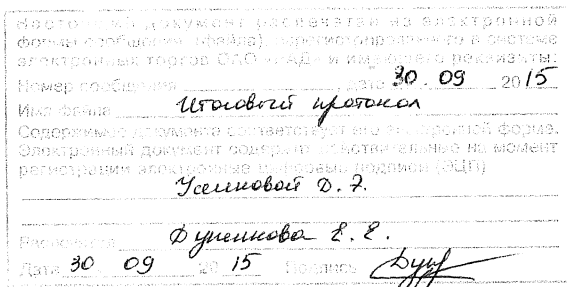 Настоящий документ распечатан из электронной
формы сообщения (файла), зарегистрированного в системе
электронных торгов ОАО «РАД» и имеющего реквизиты:
Номер сообщения дата 30. 09 2015
Имя файла Итоговый протокол
Содержимое документа соответствует его электронной форме.
Электронный документ содержит действительные на момент
регистрации электронные цифровые подписи (ЭЦП)
Д. Z.
Распечатал Е. Е.
Дата 30 09 2015 Подпись